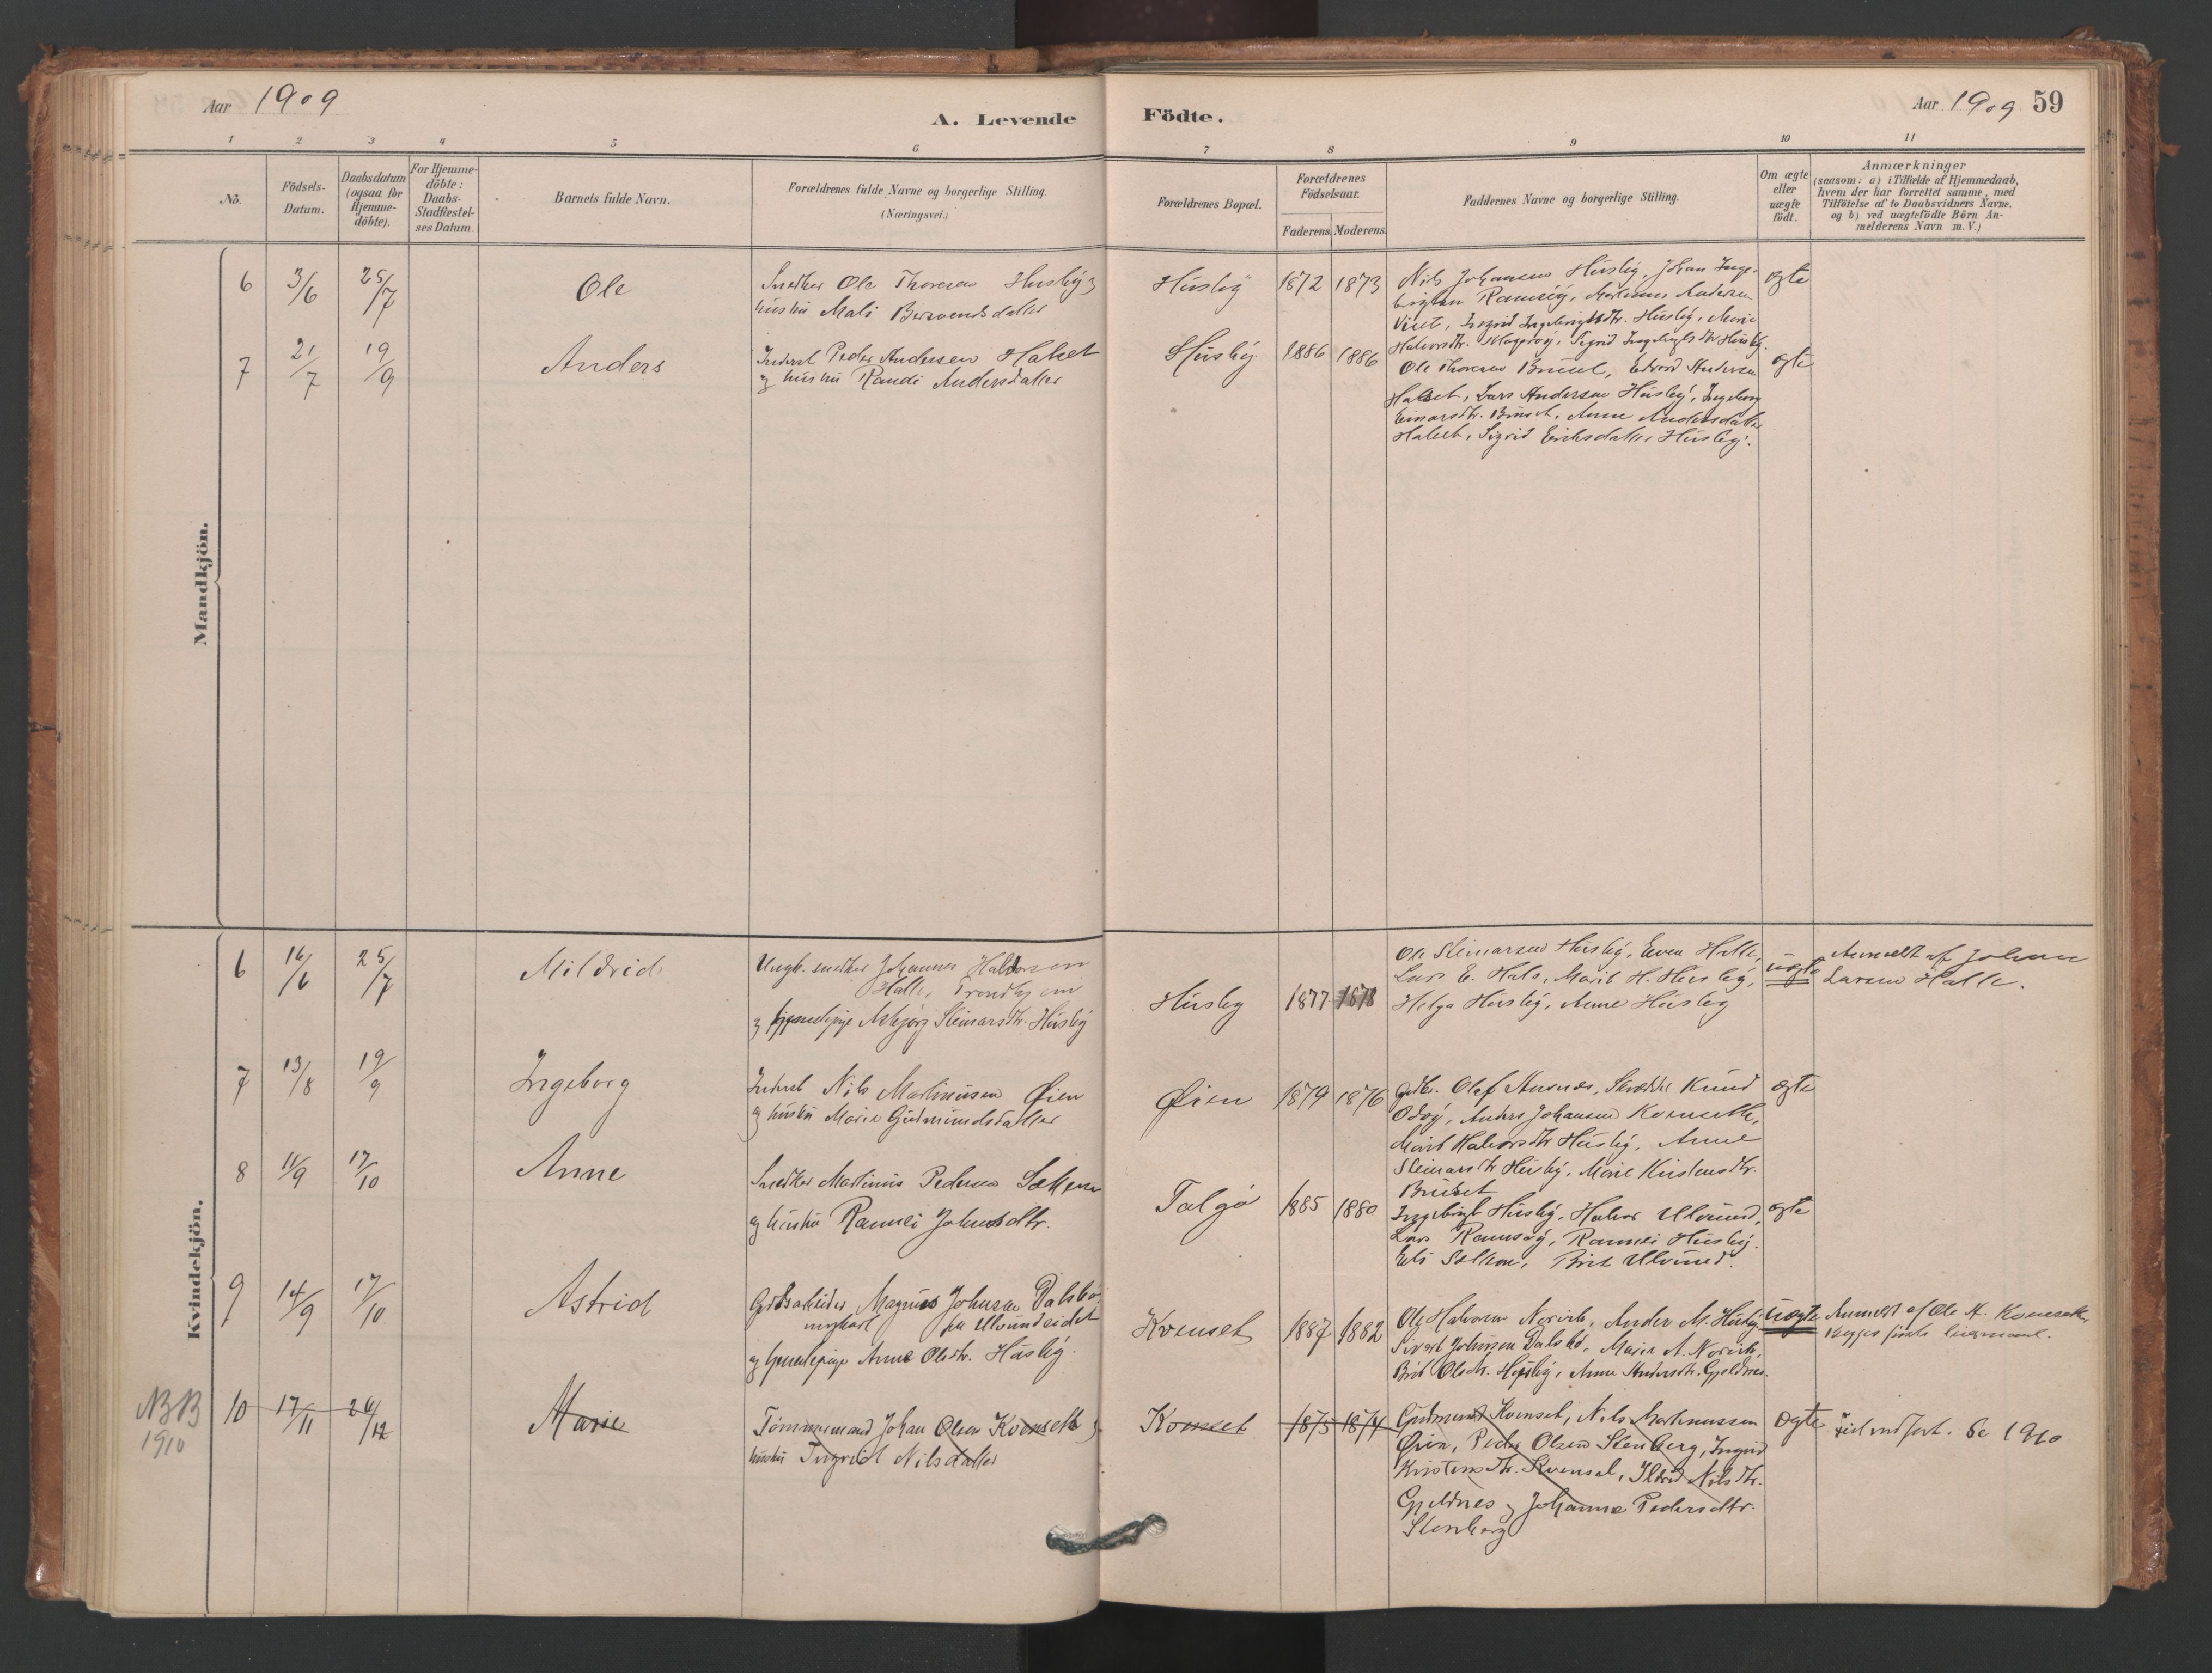 Aar 1909
A. Levende Födte.
Aar 1909 59
1 2 3 4 5 6 7 8 9 10 11
No.
Födsels-
Datum.
Daabsdatum
(ogsaa for
Hjemme-
döbte).
For Hjemme-
döbte:
Daabs-
Stadfæstel-
ses Datum.
Barnets fulde Navn.
Forældrenes fulde Navne og borgerlige Stilling.
(Næringsvei.)
Forældrenes Bopæl.
Forældrenes
Födselsaar.
Faderens. Moderens.
Faddernes Navne og borgerlige Stilling.
Om ægte
eller
uægte
födt.
Anmærkninger
(saasom: a) i Tilfælde af Hjemmedaab,
hvem der har forrettet samme, med
Tilföielse af to Daabsvidners Navne,
og b) ved uægtefödte Börn An-
melderens Navn m. V.)
Mandkjön.
6 3/6 25/7 Ole
Snedker Ole Thoresen Husby og
hustru Mali
Husby 1872 1873
Nils Johansen Husby, Johan Inge-
brigtsen Ramsöy, Andersen
Ingrid Ingebrigtsdtr. Husby, Marie
Halvorsdtr. Sigrid Ingebrigtsdtr Husby.
ægte
7 21/7 19/9 Anders
Inderst Peder Andersen Halset
og hustru Randi Andersdatter
Husby 1886 1886
Ole Thoresen Bruset, Edvard Andersen
Halset, Lars Andersen Husby, Ingeborg
Einarsdtr. Bruset, Anne Andersdatter
Halset, Sigrid Eriksdatter Husby.
ægte
Kvindekjön.
6 16/6 25/7 Mildrid
Ungk. snedker Johannes Haldorsen
Halle, Trondhjem
og Asbjørg Steinarsdtr. Husby
Husby 1877 1878
Ole Steinarsen Husby, Even Halle,
Lars E. Hals, Marit H. Husby,
Helga Husby, Anne Husby
uægte
Anmeldt af Johan
Larsen Halle.
7 13/8 19/9 Ingeborg
Inderst Nils Martinusen Øien
og hustru Marie Gudmundsdatter
Øien 1879 1876
Gbr. Olef Aasnes, Skrædder Knud
Odöy, Anders Johansen Kvenseth,
Marit Halvorsdtr Husby, Anne
Steinarsdtr Husby, Marie Kristensdtr.
Bruset
ægte
8 11/9 17/10 Anne
Snedker Martinus Pedersen Solem
og hustru Rannei Johnsdtr.
Talgö 1885 1880
Ingebrigt Husby, Halvor Ulvund,
Lars Ramsöy, Rannei Husby.
Eli Solem, Brit Ulvund.
ægte
9 14/9 17/10 Astrid
Gaardsarbeider Magnus Johnsen Dalsbö
ungkarl paa Ulvundeidet
og Anne Olsdtr. Husby.
Kvenset 1887 1882
Ole Halvorsen Norvik, Anders M. Husby,
Sivert Johnsen Dalsbö, Marie A. Norvik,
Brit Olsdtr. Husby, Anne Andersdtr. Gjeldnes.
uægte
Anmeldt af Ole H. Kvenseth,
Begges förste leiermaal.
NB
1910
10 17/11 26/12 Marie
Tömmermand Johan Olsen Kvenseth og
hustru Ingrid Nilsdatter
Kvenset 1875 1874
Gudmund Kvenset, Nils Martinussen
Øien, Peder Olsen Stenberg, Ingrid
Kristensdtr. Kvenset, Ildrid Nilsdtr.
Gjeldnes og Johanna Pedersdtr.
Stenberg
ægte
Feil indfört. Se 1910